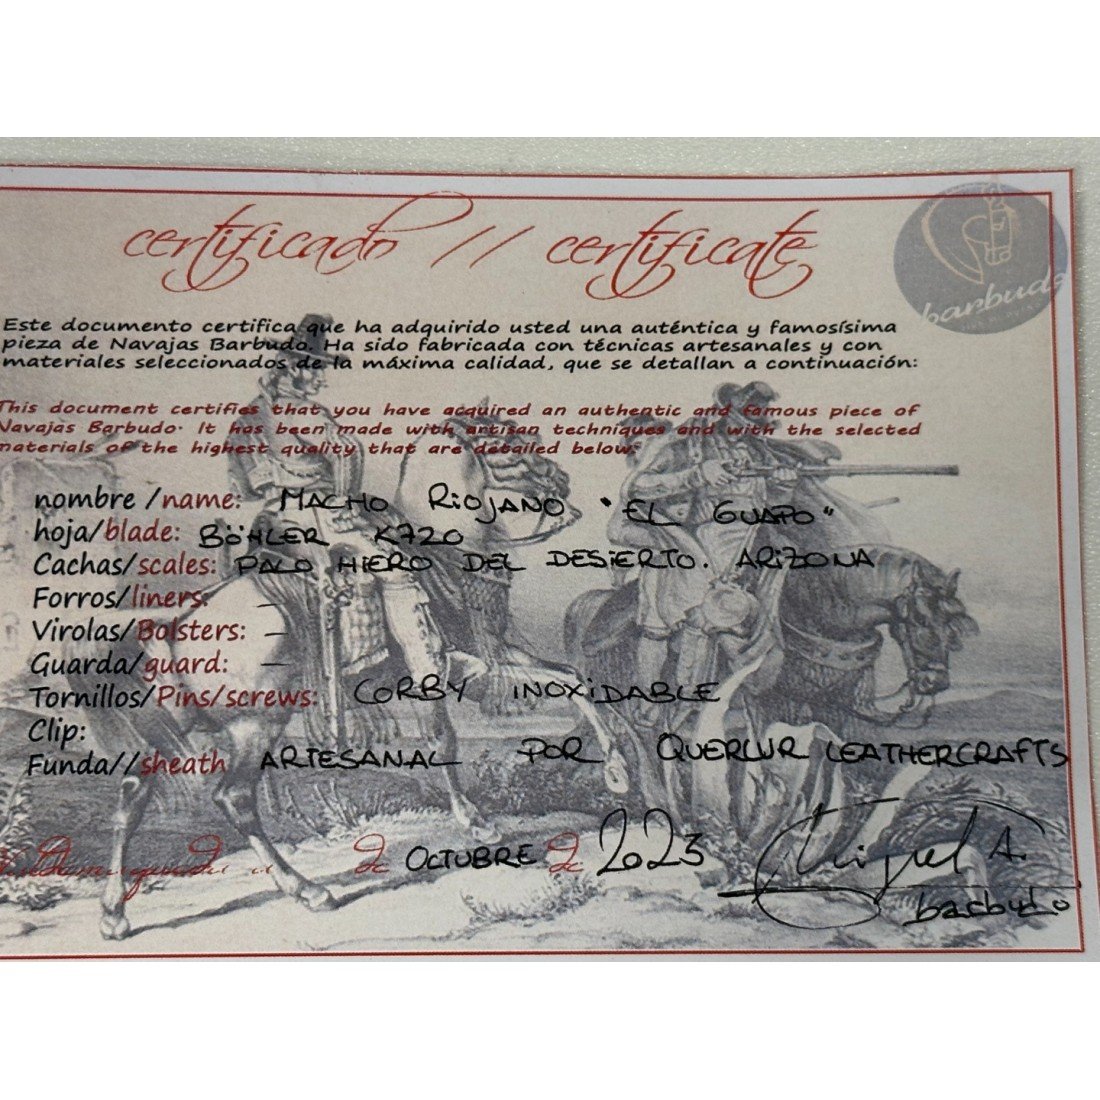 certificado // certificate
barbudo
Este documento certifica que ha adquirido usted una auténtica y famosísima
pieza de Navajas Barbudo. Ha sido fabricada con técnicas artesanales y con
materiales seleccionados de la máxima calidad, que se detallan a continuación:
This document certifies that you have acquired an authentic and famous piece of
Navajas Barbudo. It has been made with artisan techniques and with the selected
materials of the highest quality that are detailed below:
nombre /name: MACHO RIOJANO "EL GUAPO"
hoja/blade: BÖHLER K720
Cachas/scales: PALO HIERO DEL DESIERTO. ARIZONA
Forros/liners: —
Virolas/Bolsters: —
Guarda/guard: —
Tornillos/Pins/screws: CORBY INOXIDABLE
Clip:
Funda//sheath ARTESANAL POR QUERCUR LEATHERCRAFTS
de OCTUBRE de 2023
Miguel A.
barbudo